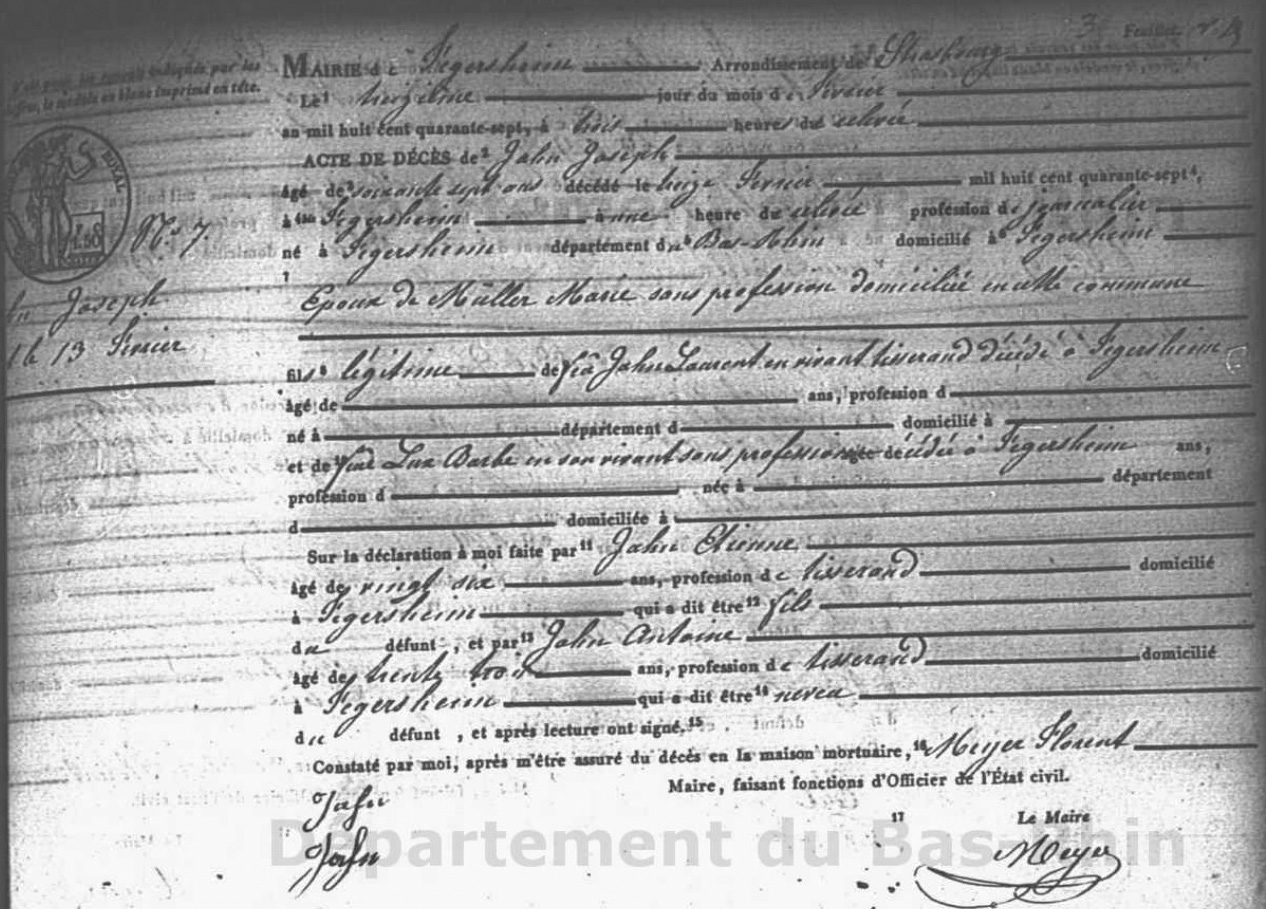 3 Feuillet
MAIRIE de Fegersheim Arrondissement de Strasbourg
Le 1 treizième jour du mois de Février
an mil huit cent quarante-sept, à trois heures du relevée
ACTE DE DÉCÈS de 2 Jahn Joseph
âgé de 3 soixante sept ans décédé le treize Février mil huit cent quarante-sept 4,
à Fegersheim à une heure du relevée profession de journalier
né à Fegersheim département du 5 Bas-Rhin domicilié à 6 Fegersheim
7
Epoux de Müller Marie sans profession domiciliée en cette commune
fils 8 légitime de feû Jahn Laurent en vivant tisserand décédé à Fegersheim
âgé de ans, profession d
né à département d domicilié à
et de feue Lux Barbe en son vivant sans profession décédée à Fegersheim ans,
profession d née à département
d domiciliée à
Sur la déclaration à moi faite par 11 Jahn Etienne
âgé de vingt six ans, profession de tisserand domicilié
à Fegersheim qui a dit être 12 fils
du défunt, et par 13 Jahn Antoine
âgé de trente trois ans, profession de tisserand domicilié
à Fegersheim qui a dit être 14 neveu
du défunt, et après lecture ont signé. 15
Constaté par moi, après m'être assuré du décès en la maison mortuaire, 16 Meyer Florent
Maire, faisant fonctions d'Officier de l'État civil.
17 Le Maire
Jahn
Jahn
Meyer
indiqués par les
le modèle en blanc imprimé en tête.
ROYAL
1.50
No 7.
Joseph
le 13 Février
Département du Bas-Rhin